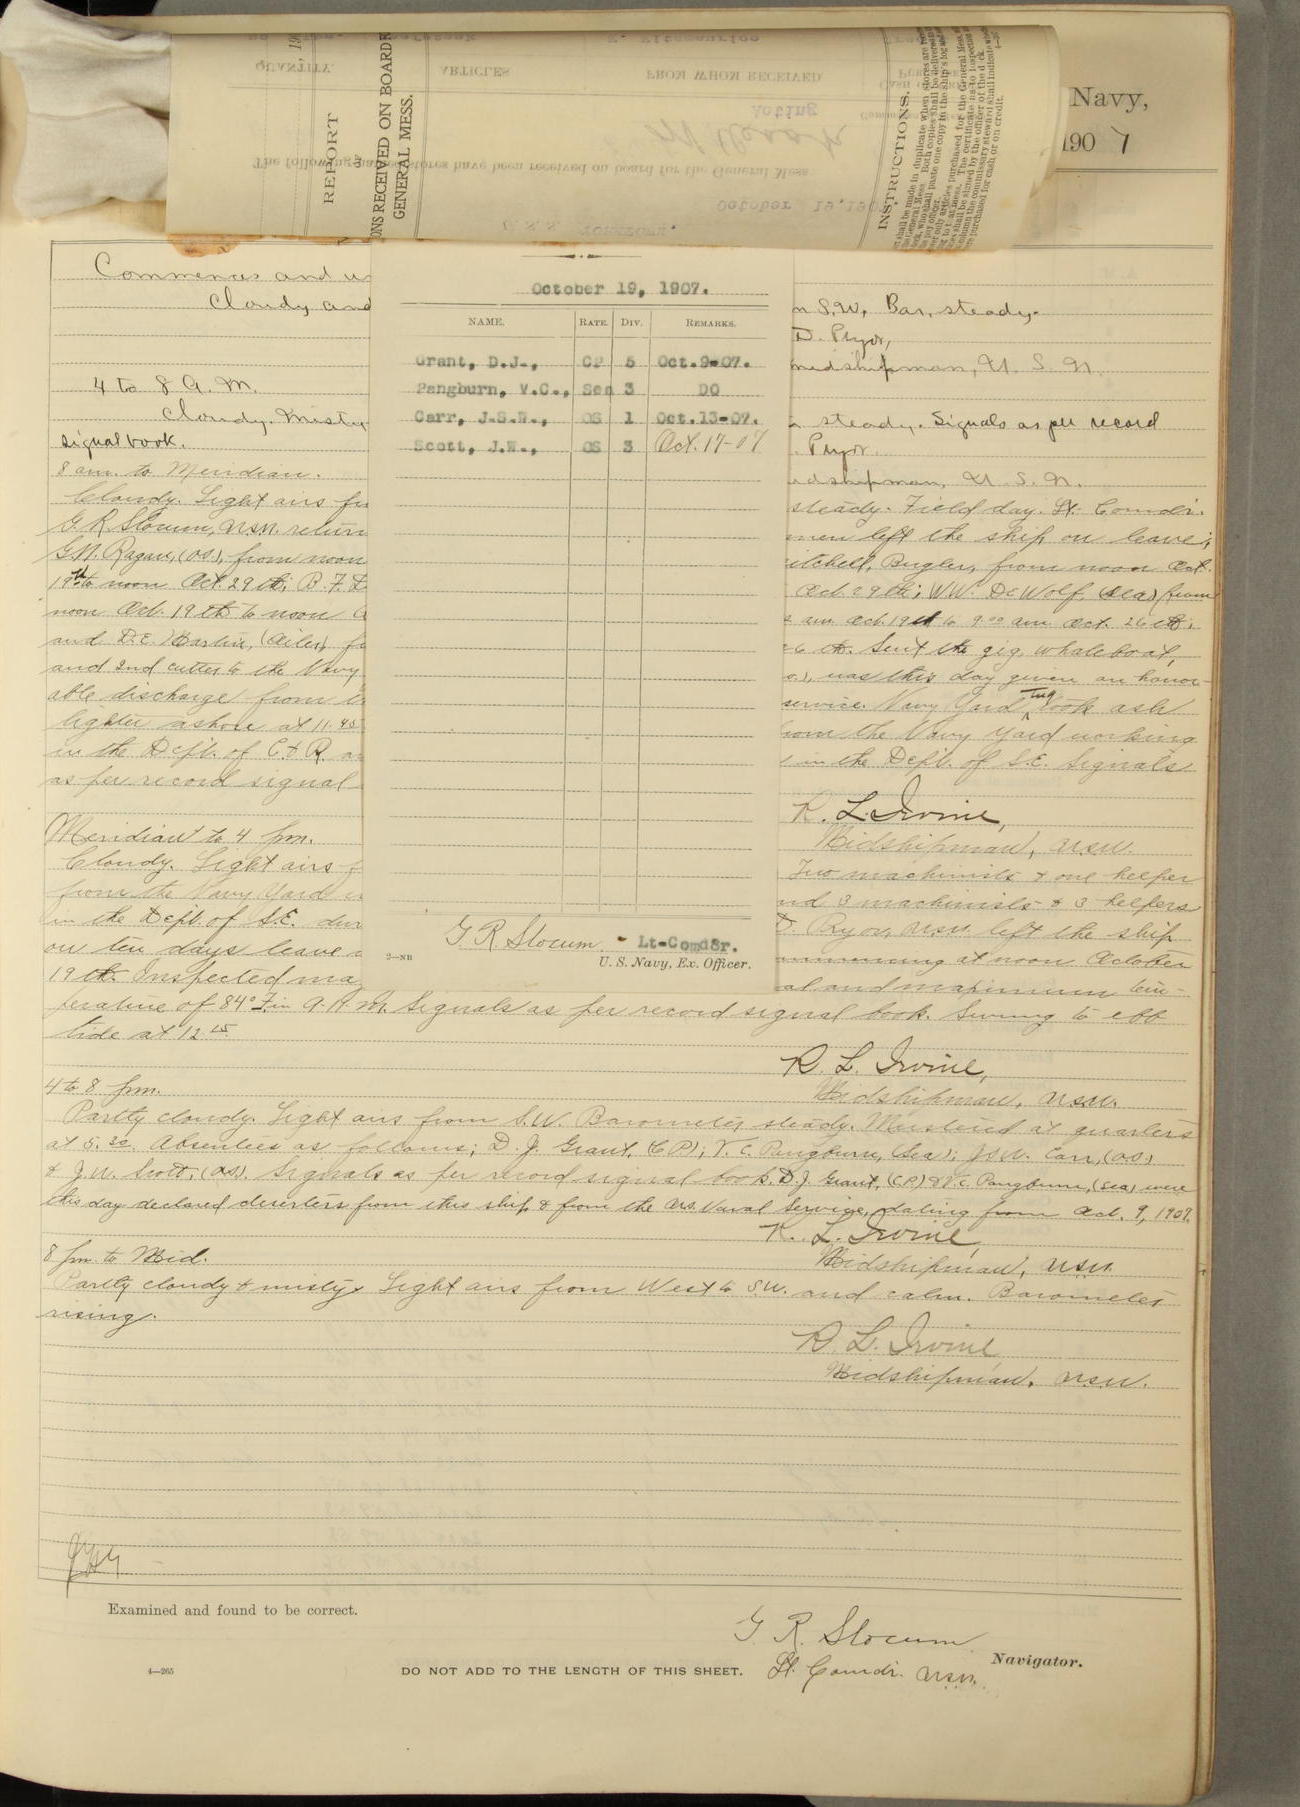 REPORT
ONS RECEIVED ON BOARD
GENERAL MESS.
QUANTITY.
ARTICLES
FROM WHOM RECEIVED
Acting
The following named stores have been received on board for the General Mess
October 19,190
INSTRUCTIONS.
Navy,
1907
Commences and
Cloudy and
n S.W, Bar. steady.
D. Pryor,
midshipman, U. S. N.
4 to 8 A.M.
Cloudy. Misty
steady. Signals as per record
signal book.
Pryor.
dshipman, U. S. N.
October 19, 1907.
NAME. RATE. DIV. REMARKS.
Grant, D.J., CP 5 Oct.9-07.
Pangburn, V.C., Sea 3 DO
Carr, J.S.W., OS 1 Oct.13-07.
Scott, J.W., OS 3 Oct. 17-07
G R Slocum - Lt-Comdr.
2—NB
U. S. Navy, Ex. Officer.
8 am. to Meridian.
Cloudy. Light airs
steady. Field day. Lt. Comdr.
G. R. Slocum, USN. return
men left the ship on leave;
G.N. Ragan, (OS), from noon
itchell, Bugler, from noon Oct.
19th to noon Oct. 29th; B. F.
Oct. 29th; W.W. DeWolf, (Sea) from
noon Oct. 19th to noon
am Oct. 19th to 9.00 am Oct. 26th;
and D.E. Martin, (Oiler),
26 th. Sent the gig, whaleboat,
and 2nd cutter to the Navy
was this day given an honor-
able discharge from
service. Navy Yard Tug took ash
lighter ashore at 11.45
from the Navy Yard working
in the Dept. of C. & R.
in the Dept. of S.E. Signals
as per record signal
R. L. Irvine,
Midshipman, USN.
Meridian to 4 pm.
Cloudy. Light airs
Two machinists & one helper
from the Navy Yard
nd 3 machinists & 3 helpers
in the Dept. of S.E.
D. Pryor, USN. left the ship
on ten days leave
commencing at noon October
19th. Inspected ma
al and maximum tem-
perature of 84° F in A.H.M. Signals as per record signal book. Swung to ebb
tide at 12.15
R. L. Irvine,
Midshipman, USN.
4 to 8 pm.
Partly cloudy. Light airs from S.W. Barometer steady. Mustered at quarters
at 5.30. Absentees as follows; D. J. Grant, (CP); V. C. Pangburn, (Sea); J.S.W. Carr, (OS)
& J.W. Scott, (OS). Signals as per record signal book. D.J. Grant, (CP) & V.C. Pangburn, (Sea) were
this day declared deserters from this ship & from the U.S. Naval Service, dating from Oct. 9, 1907.
R. L. Irvine,
Midshipman, USN.
8 pm. to Mid.
Partly cloudy & misty. Light airs from West to S.W. and calm. Barometer
rising.
R. L. Irvine
Midshipman, USN.
Examined and found to be correct.
G. R. Slocum
Lt. Comdr. USN.
Navigator.
4—265
DO NOT ADD TO THE LENGTH OF THIS SHEET.